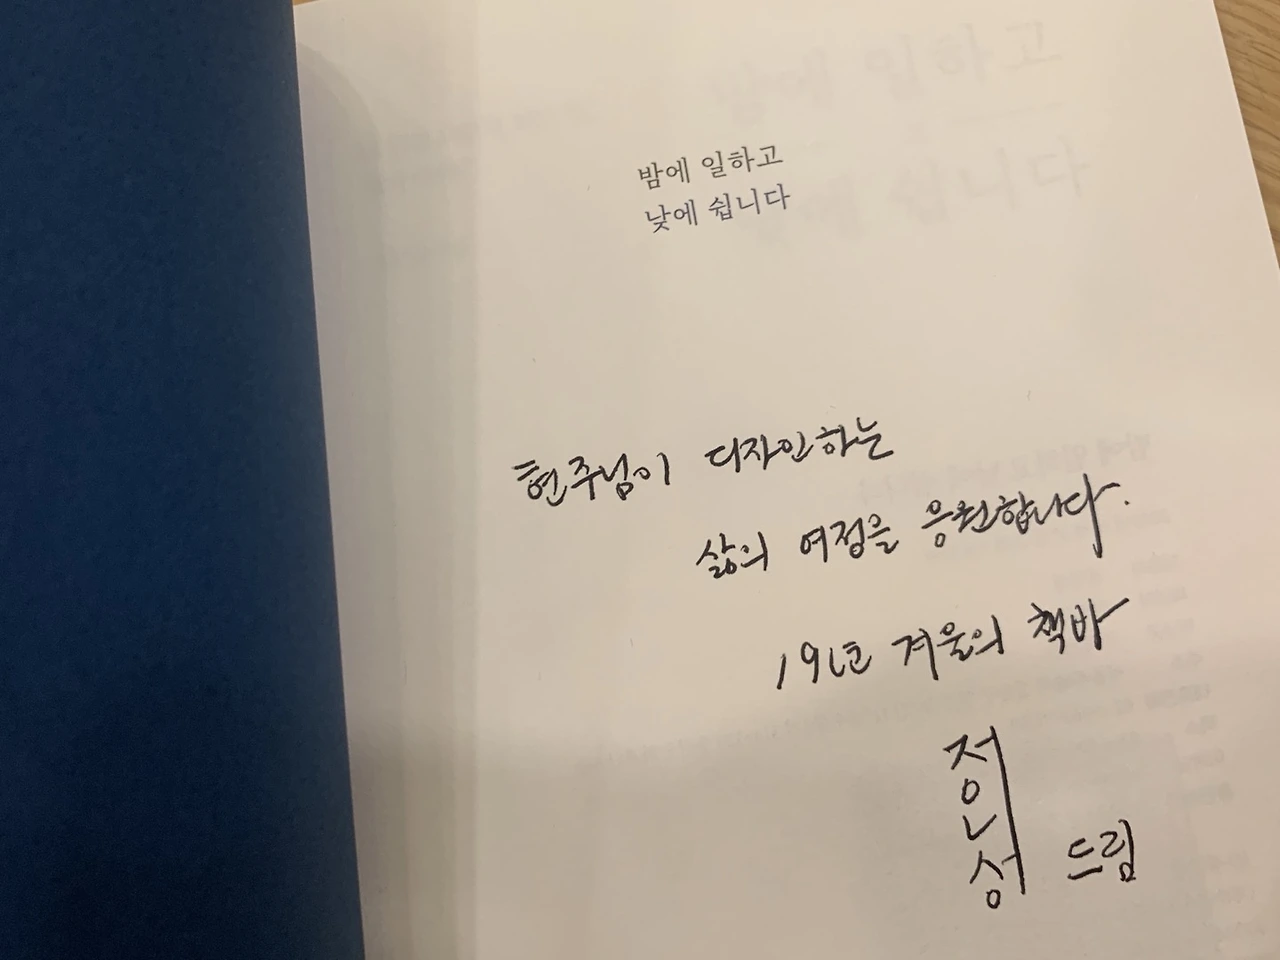 밤에 일하고
낮에 쉽니다
현주님이 디자인하는
삶의 여정을 응원합니다.
19년 겨울의 책방
정인성 드림